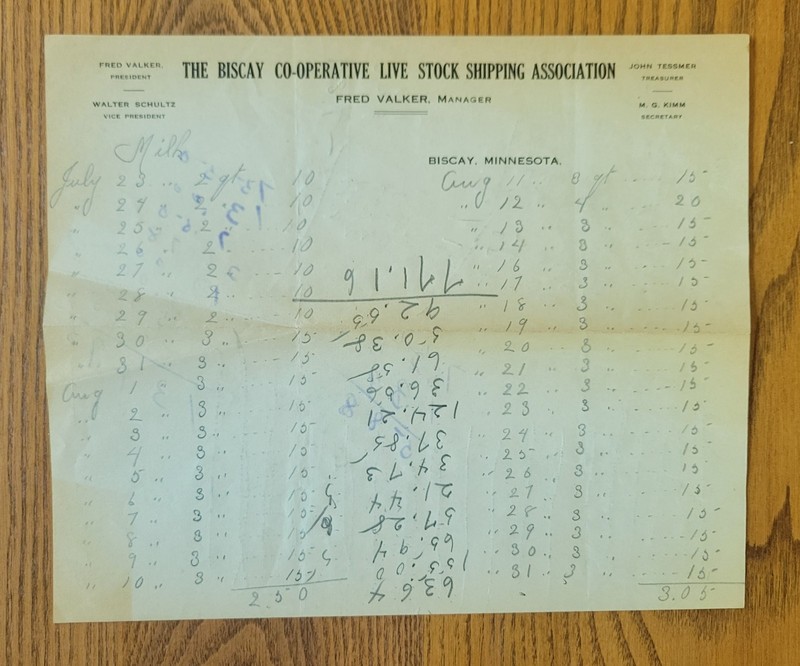 FRED VALKER,
PRESIDENT
WALTER SCHULTZ
VICE PRESIDENT
THE BISCAY CO-OPERATIVE LIVE STOCK SHIPPING ASSOCIATION
FRED VALKER, MANAGER
JOHN TESSMER
TREASURER
M. G. KIMM
SECRETARY
BISCAY, MINNESOTA,
Milk
July 23 " 2 qt 10
" 24 " 2 " 10
" 25 " 2 " 10
" 26 " 2 " 10
" 27 " 2 " 10
" 28 " 2 " 10
" 29 " 2 " 10
" 30 " 3 " 15
" 31 " 3 " 15
Aug 1 " 3 " 15
" 2 " 3 " 15
" 3 " 3 " 15
" 4 " 3 " 15
" 5 " 3 " 15
" 6 " 3 " 15
" 7 " 3 " 15
" 8 " 3 " 15
" 9 " 3 " 15
" 10 " 3 " 15
2.50
Aug 11 " 3 qt 15
" 12 " 4 " 20
" 13 " 3 " 15
" 14 " 3 " 15
" 16 " 3 " 15
" 17 " 3 " 15
" 18 " 3 " 15
" 19 " 3 " 15
" 20 " 3 " 15
" 21 " 3 " 15
" 22 " 3 " 15
" 23 " 3 " 15
" 24 " 3 " 15
" 25 " 3 " 15
" 26 " 3 " 15
" 27 " 3 " 15
" 28 " 3 " 15
" 29 " 3 " 15
" 30 " 3 " 15
" 31 " 3 " 15
3.05
63.64
155.00
65.94
57.28
21.44
34.73
37.85
124.21
36.56
61.58
50.38
42.55